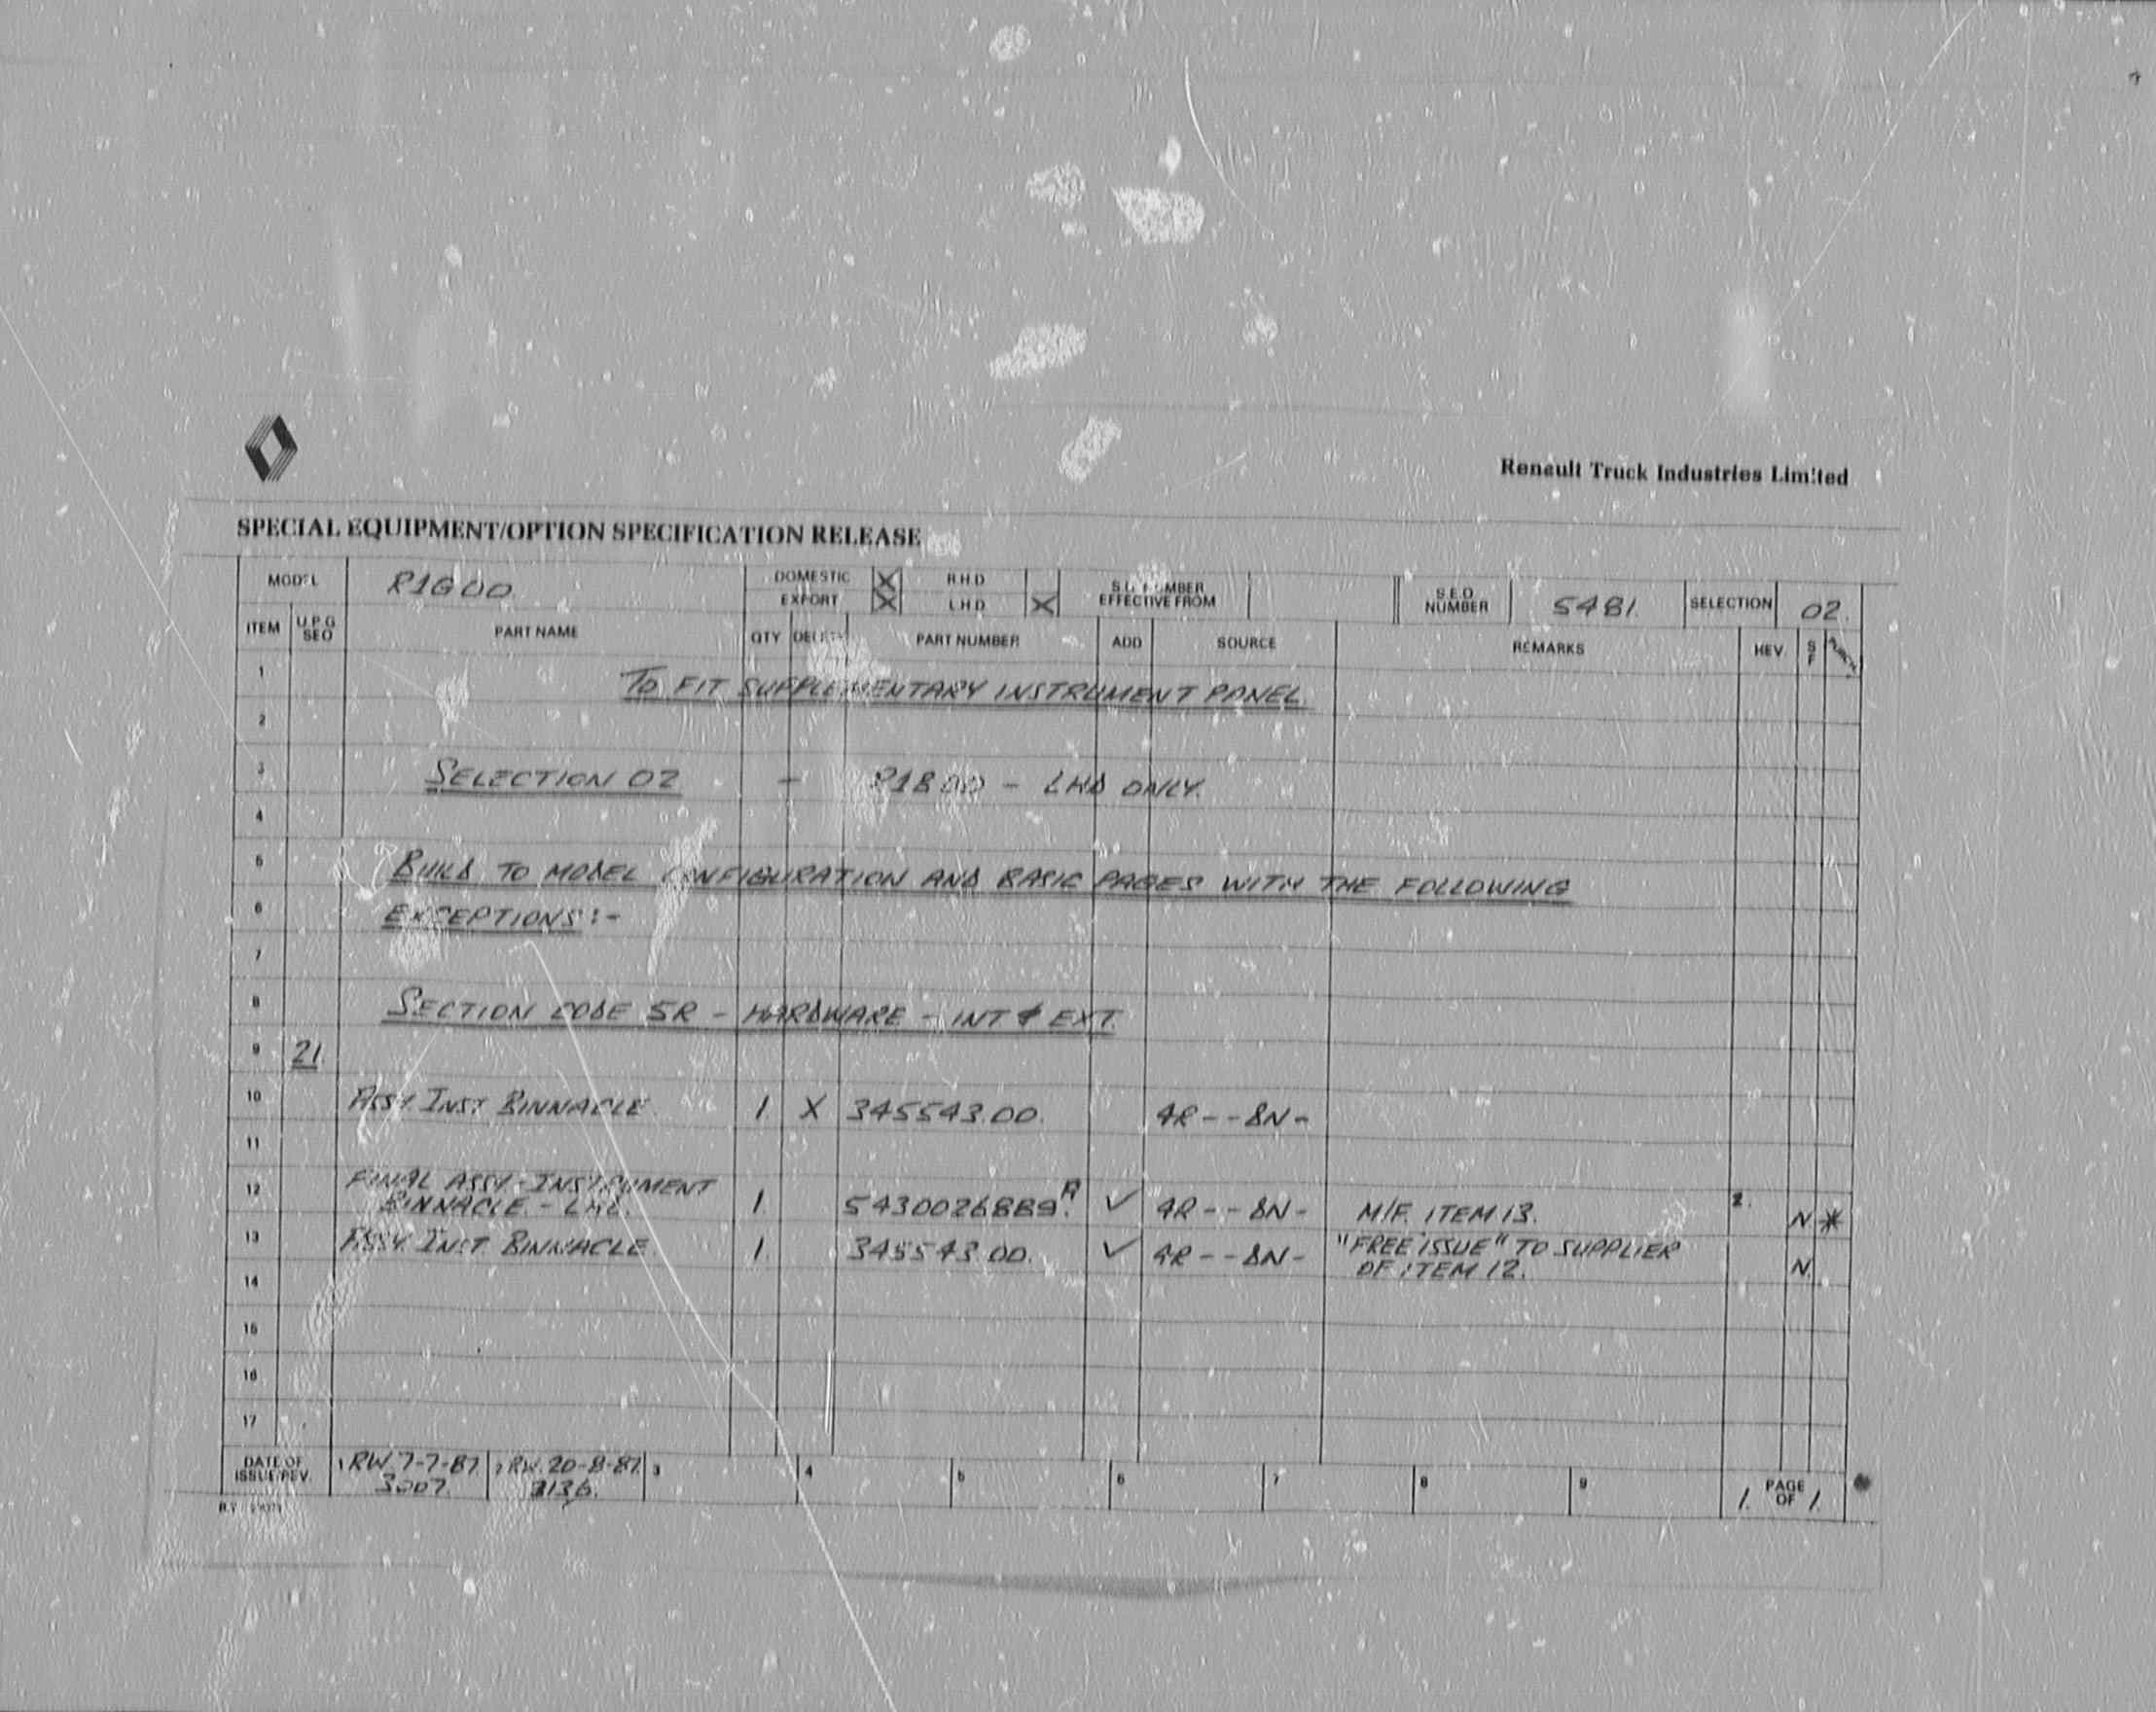 Renault Truck Industries Limited
SPECIAL EQUIPMENT/OPTION SPECIFICATION RELEASE
MODEL R1G00 DOMESTIC X R.H.D EFFECTIVE FROM S.E.O NUMBER 5481. SELECTION 02.
EXPORT X L.H.D X
ITEM U.P.G SEQ PART NAME QTY DELETE PART NUMBER ADD SOURCE REMARKS REV S F
1 TO FIT SUPPLEMENTARY INSTRUMENT PANEL.
2
3 SELECTION 02 - LHD ONLY.
4
5 BUILD TO MODEL CONFIGURATION AND BASIC PAGES WITH THE FOLLOWING
6 EXCEPTIONS:-
7
8 SECTION CODE 5R - HARDWARE - INT & EXT.
9 21.
10 ASSY. INST BINNACLE 1 X 345543.00. 4R--8N-
11
12 FINAL ASSY.-INSTRUMENT
BINNACLE - 1 5430026889.A ✓ 4R--8N- M/F. ITEM 13. 2. N *
13 ASSY. INST. BINNACLE 1. 345543.00. ✓ 4R--8N- "FREE ISSUE" TO SUPPLIER
OF ITEM 12. N.
14
15
16
17
DATE OF ISSUE/REV. 1 RW. 7-7-87 2 RW. 20-8-87 3 4 5 6 7 8 9 1. PAGE OF 1.
3007. 3136.